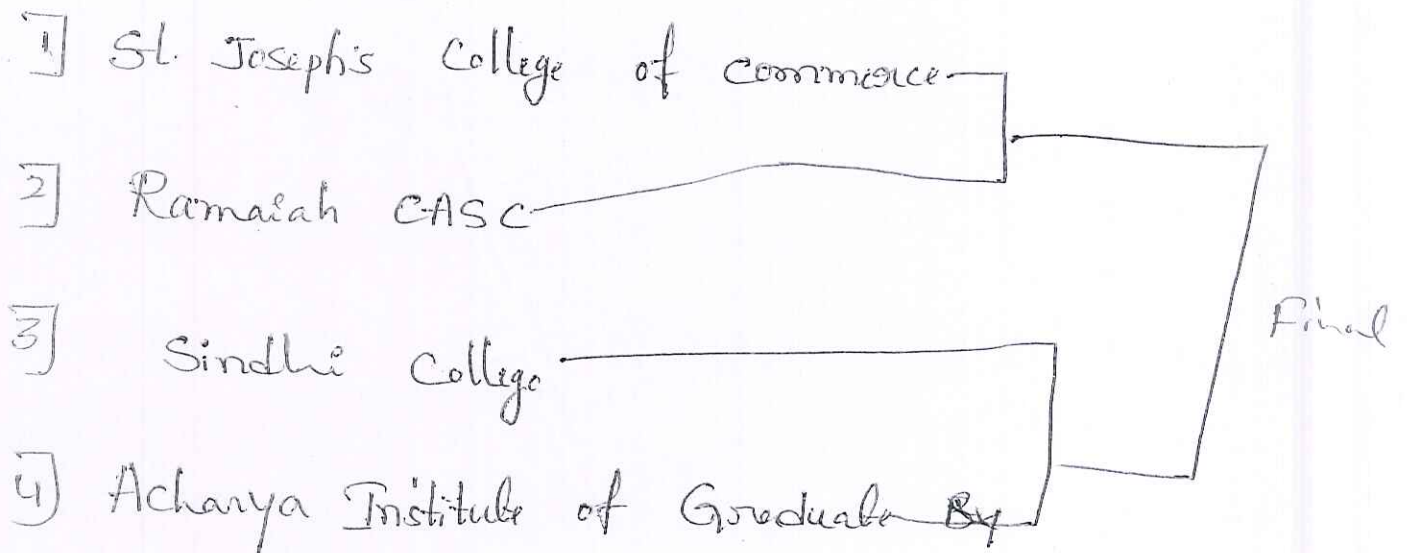 1] St. Joseph's College of Commerce
2] Ramaiah CASC
3] Sindhi College
Final
4] Acharya Institute of Graduate